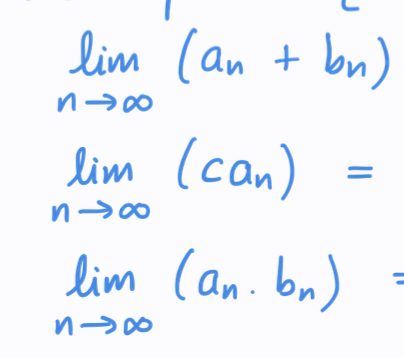 lim n→∞ (aₙ + bₙ)
lim n→∞ (caₙ) =
lim n→∞ (aₙ . bₙ) =